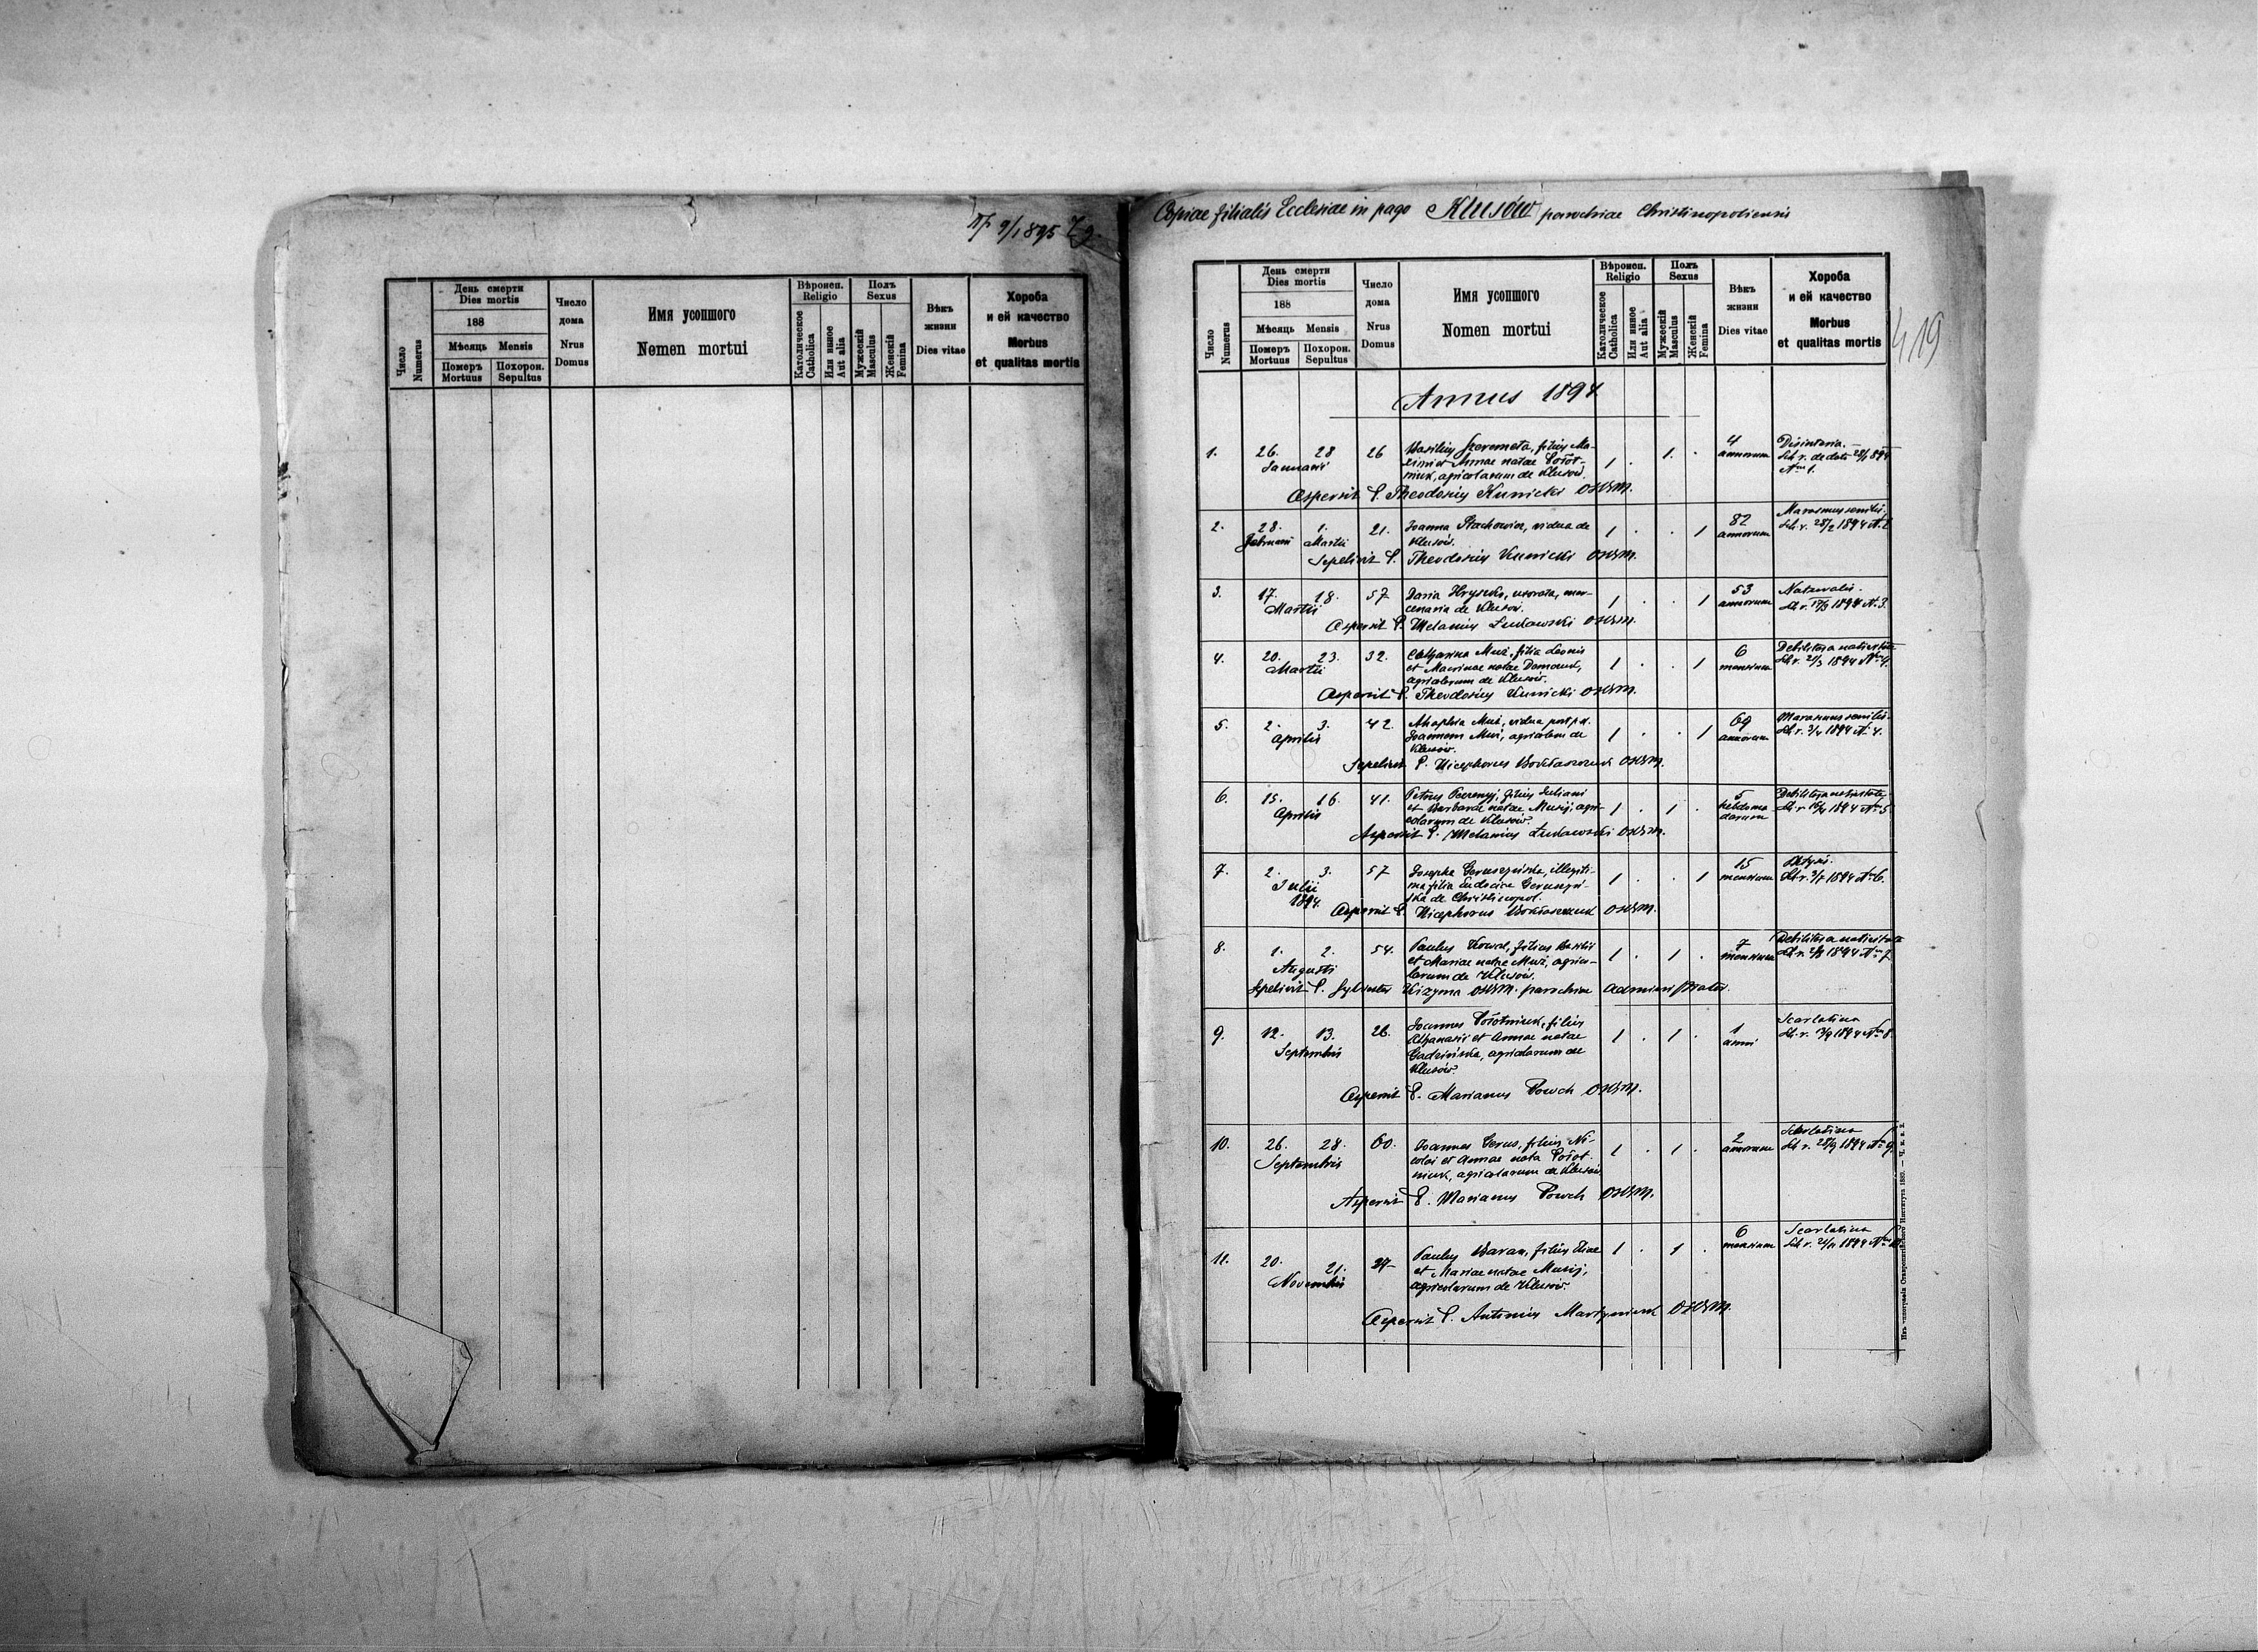 Пр 9/1 895
Число
Numerus
День смерти
Dies mortis
188
Мѣсяць Mensis
Померъ
Mortuus
Похорон.
Sepultus
Число
дома
Nrus
Domus
Имя усопшого
Nomen mortui
Вѣроисп.
Religio
Католическое
Catholica
Или инное
Aut alia
Полъ
Sexus
Мужескій
Masculus
Женскій
Femina
Вѣкъ
жизни
Dies vitae
Хороба
и ей качество
Morbus
et qualitas mortis
Copiae filialis Ecclesiae in pago Klusów parochiae Christinopoliensis
419
Число
Numerus
День смерти
Dies mortis
188
Мѣсяць Mensis
Померъ
Mortuus
Похорон.
Sepultus
Число
дома
Nrus
Domus
Имя усопшого
Nomen mortui
Вѣроисп.
Religio
Католическое
Catholica
Или инное
Aut alia
Полъ
Sexus
Мужескій
Masculus
Женскій
Femina
Вѣкъ
жизни
Dies vitae
Хороба
и ей качество
Morbus
et qualitas mortis
Annus 1894
1. 26. 28 26 Basilius Szeremeta, filius Ma- 1 . 1. . 4 Disinteria.
Januarii ximi et Annae natae Połot- annorum Sch. r. de dato 28/1 894
niuk, agricolarum de Klusów. No 1.
Aspersit P. Theodosius Kunicki OSBM.
2. 28. 1. 21. Joanna Stachowicz, vidua de 1 . . 1 82 Marasmus senilis.
Februarii Martii Klusów. annorum Sch. r. 28/2 1894 No 2
Sepelivit P. Theodosius Kunicki OSBM.
3. 17. 18. 57 Daria Hryszko, uxorata, mer- 1 . . 1 53 Naturalis.
Martii cenaria de Klusów. annorum Sch. r. 17/3 1894 No 3.
Aspersit P. Melanius Łukowski OSBM.
4. 20. 23. 32. Catharina Muż, filia Leonis 1 . . 1 6 Debilitas a nativitate
Martii et Macrinae natae mensium Sch. r. 21/3 1894
agricolarum de Klusów.
Aspersit P. Theodosius Kunicki OSBM.
5. 2. 3. 42. Muż, vidua post p.d. 1 . . 1 69 Marasmus senilis.
Aprilis Joannem Muż, agricolam de annorum Sch. r. 3/4 1894 No 4.
Klusów.
Sepelivit P. Nicephorus OSBM.
6. 15. 16. 41. Petrus filius Juliani 1 . 1 . 5 Debilitas a nativitate
Aprilis et Barbarae natae Musij, agri- hebdoma Sch. r. 16/4 1894 No 5
colarum de Klusów. darum
Aspersit P. Melanius Łukowski OSBM.
7. 2. 3. 57 Josepha illegiti- 1 . . 1 15 Phtysis.
Julii ma filia mensium Sch. r. 3/7 1894 No 6.
1894. de Christinopol.
Aspersit P. Nicephorus OSBM.
8. 1. 2. 54. Paulus Kowal, filius Basilii 1 . 1 . 7 Debilitas a nativitate
Augusti et Mariae natae Muż, agrico- mensium Sch. r. 2/8 1894 No 7
larum de Klusów.
Sepelivit P. Sylvester Kizyma OSBM. parochiae Administrator.
9. 12. 13. 26. Joannes Połotniuk, filius 1 . 1 . 1 Scarlatina
Septembris Athanasii et Annae natae anni Sch. r. 1894 No 8.
agricolarum de
Klusów.
Aspersit P. Marianus Powch OSBM.
10. 26. 28. 60. Joannes Gerus, filius Ni- 1 . 1 . 2 Scarlatina
Septembris colai et Annae nata Połot- annorum Sch. r. 28/9 1894 No 9.
niuk, agricolarum de Klusów
Aspersit P. Marianus Powch OSBM.
11. 20. 21. 27 Paulus Baran, filius Eliae 1 . 1 . 6 Scarlatina
Novembris et Mariae natae Musij, mensium Sch. r. 21/11 1894 No 10
agricolarum de Klusów.
Aspersit P. Antonius Martyniuk OSBM.
Изъ типографіи Ставропигійского Института 1885.